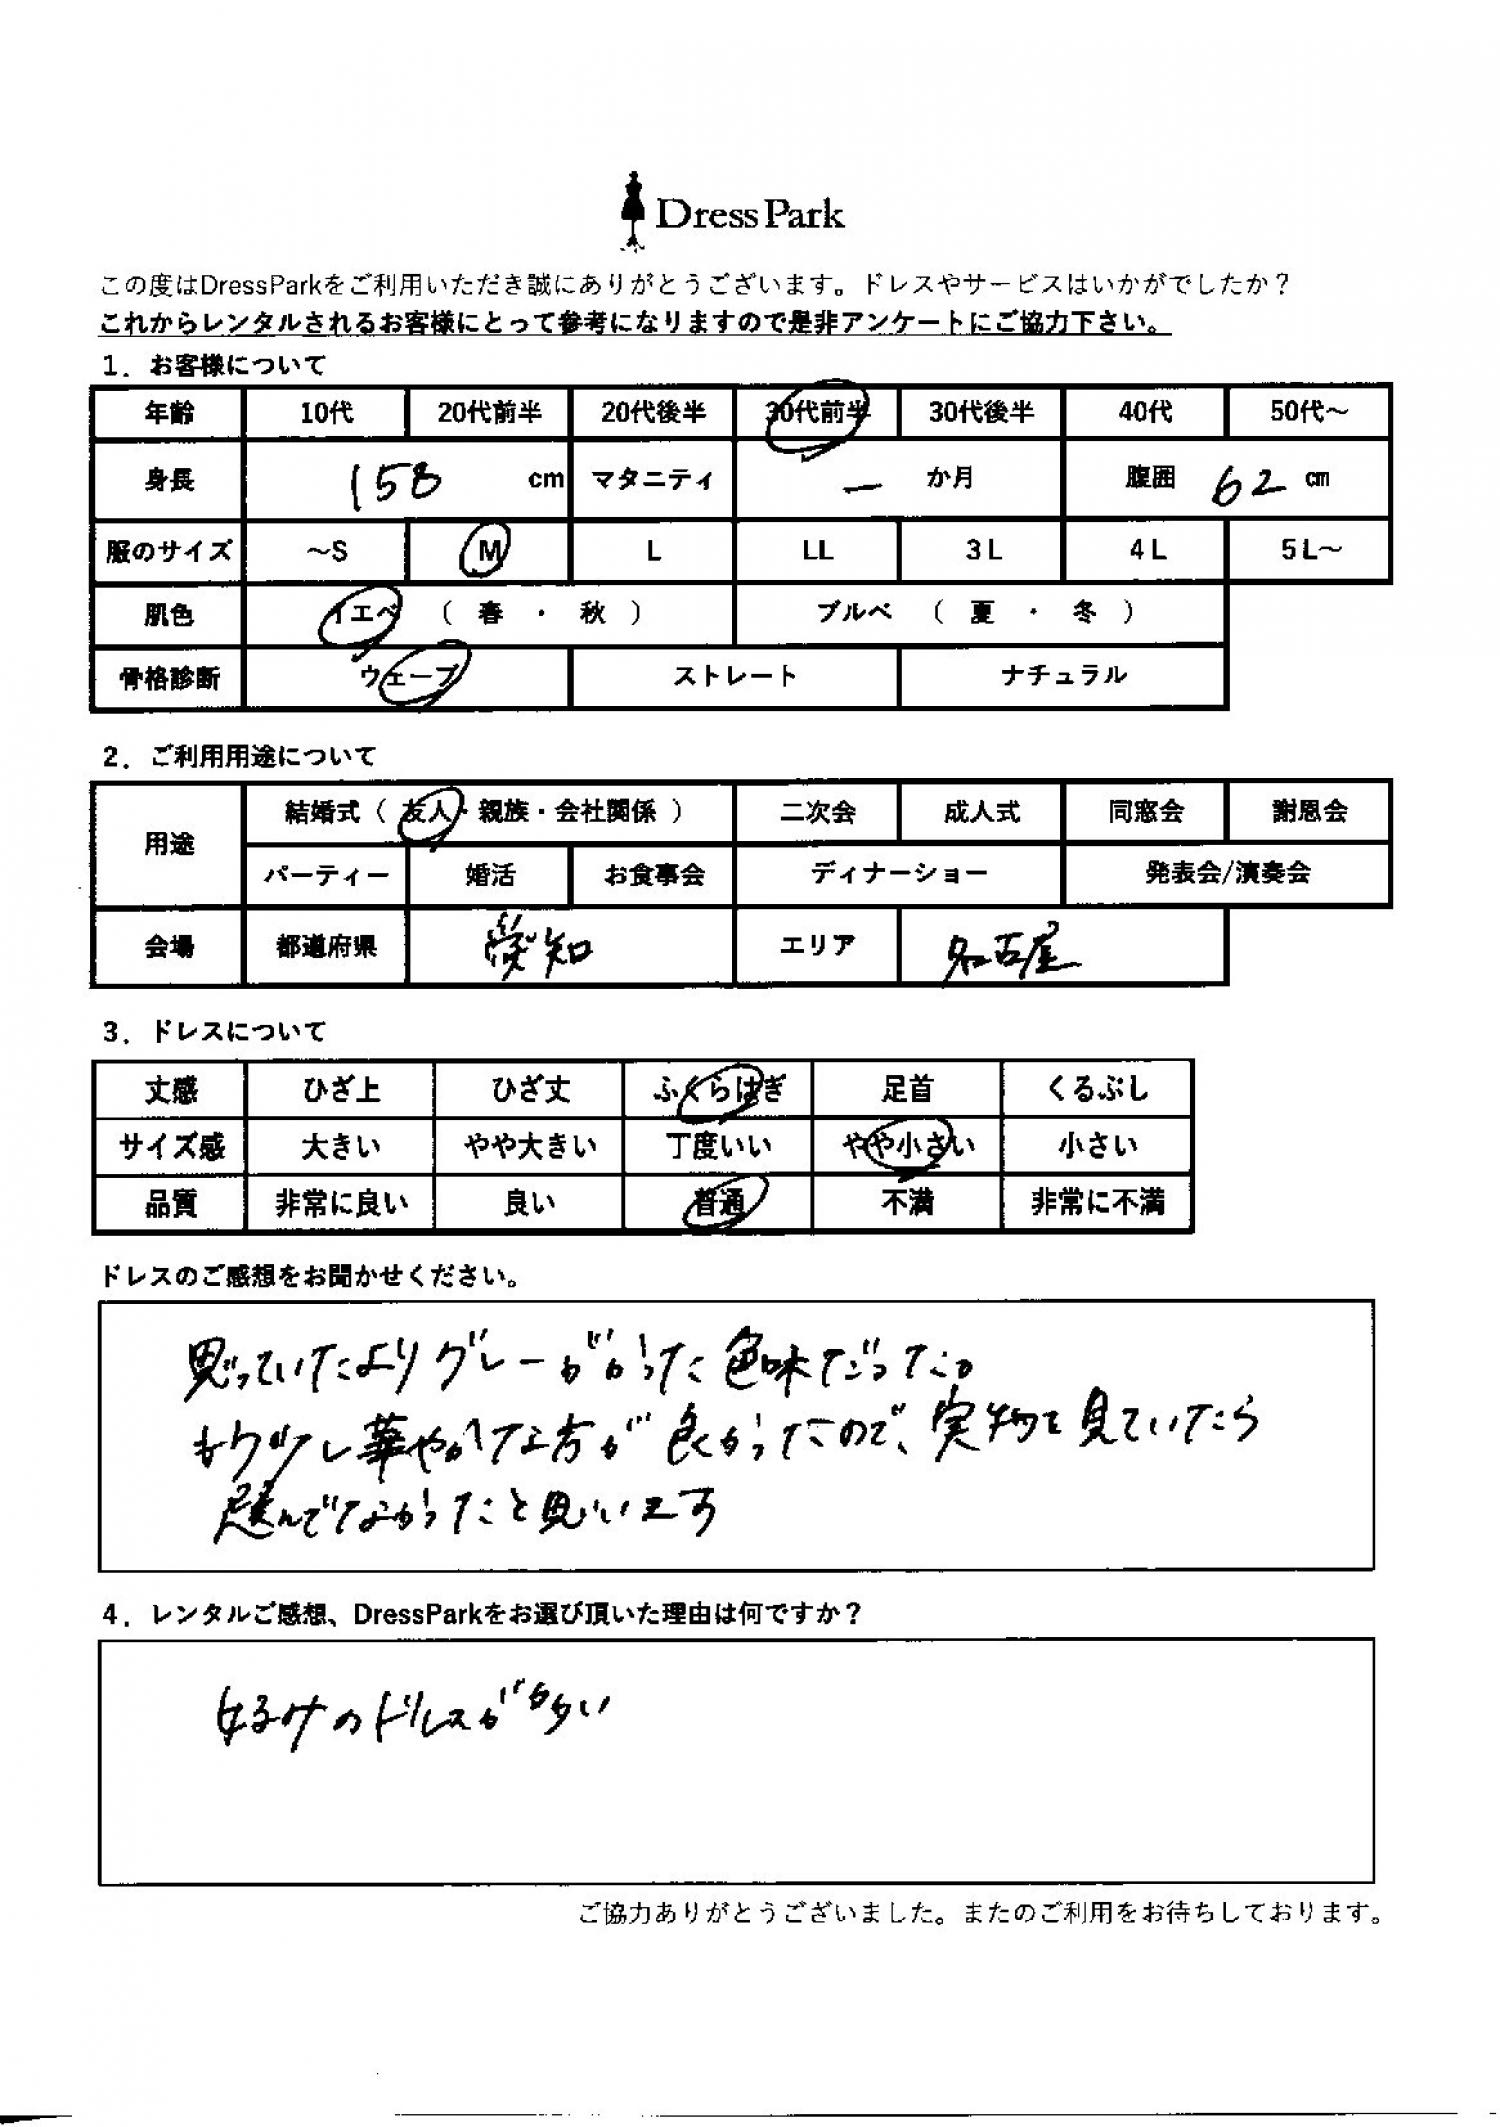 Dress Park
この度はDressParkをご利用いただき誠にありがとうございます。ドレスやサービスはいかがでしたか？
これからレンタルされるお客様にとって参考になりますので是非アンケートにご協力下さい。
1．お客様について
年齢 10代 20代前半 20代後半 30代前半 30代後半 40代 50代～
身長 158 cm マタニティ ー か月 腹囲 62 cm
服のサイズ ～S M L LL 3L 4L 5L～
肌色 イエベ （ 春 ・ 秋 ） ブルベ （ 夏 ・ 冬 ）
骨格診断 ウェーブ ストレート ナチュラル
2．ご利用用途について
用途 結婚式（ 友人・親族・会社関係 ） 二次会 成人式 同窓会 謝恩会
パーティー 婚活 お食事会 ディナーショー 発表会/演奏会
会場 都道府県 愛知 エリア 名古屋
3．ドレスについて
丈感 ひざ上 ひざ丈 ふくらはぎ 足首 くるぶし
サイズ感 大きい やや大きい 丁度いい やや小さい 小さい
品質 非常に良い 良い 普通 不満 非常に不満
ドレスのご感想をお聞かせください。
思っていたよりグレーがかった色味だった。
もう少し華やかな方が良かったので、実物を見ていたら
選んでなかったと思います
4．レンタルご感想、DressParkをお選び頂いた理由は何ですか？
好みのドレスが多い
ご協力ありがとうございました。またのご利用をお待ちしております。